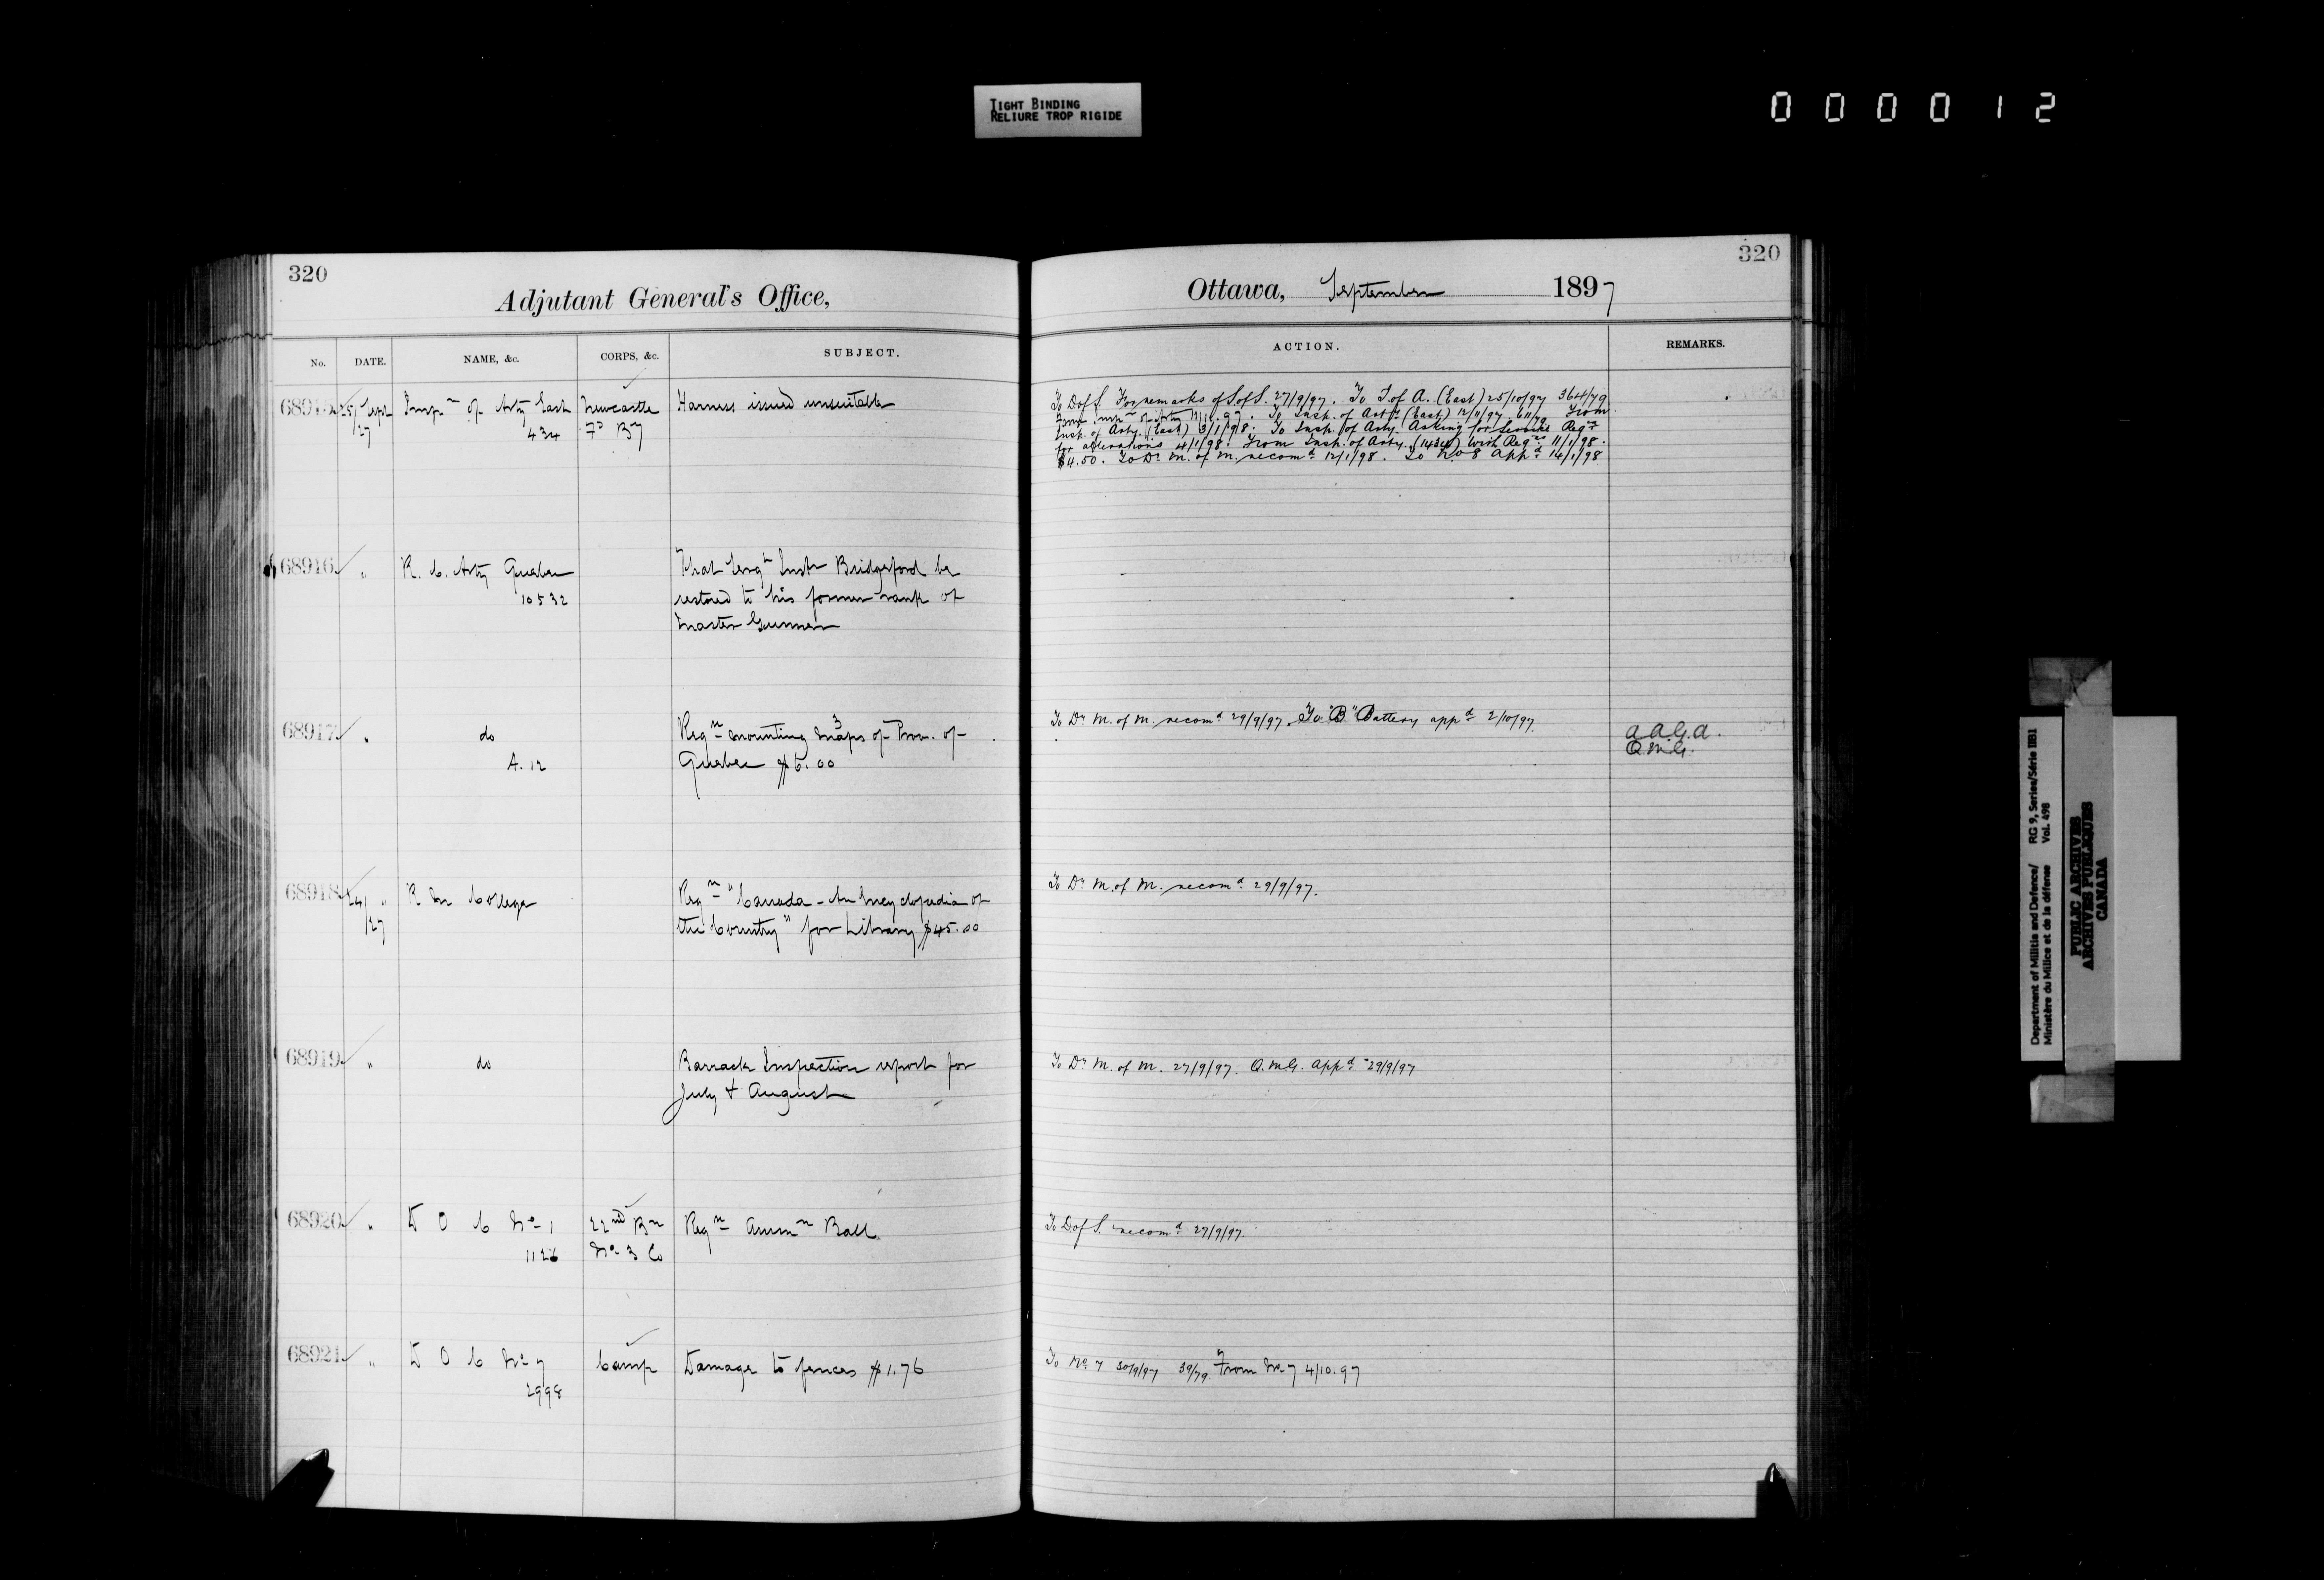 TIGHT BINDING
RELIURE TROP RIGIDE
000012
320
Adjutant General's Office,
No. DATE. NAME, &c. CORPS, &c. SUBJECT.
68915 25/27 Sept Inspn of Arty East Newcastle Harness issued unsuitable
434 Fd By
68916 " R. C. Arty Quebec That Sergt Instr Bridgeford be
10532 restored to his former rank of
Master Gunner
68917 " do Reqn mounting 3 maps of Prov. of
A. 12 Quebec $6.00
68918 24/27 " R M College Reqn "Canada - An Encyclopedia of
the Country" for Library $45.00
68919 " do Barrack Inspection report for
July & August
68920 " D O C No 1 22nd Bn Reqn Ammn Ball
1126 No 3 Co
68921 " D O C No 7 Camp Damage to fences $1.76
2998
320
Ottawa, September 1897
ACTION. REMARKS.
To D of S. For remarks of S. of S. 27/9/97. To I. of A. (East) 25/10/97 364/79
From of Arty . To Insp. of Arty (East) 12/11/97. 611/79 From
Insp. of Arty. (East) 3/1/98. To Insp. of Arty. Asking for Reqn
for alterations 4/1/98. From Insp. of Arty. (1434) with Reqn 11/1/98.
$4.50. To Dr M. of M. recomd 12/1/98. To No 8 appd 14/1/98
To Dr M. of M. recomd 29/9/97. To "B" Battery appd 2/10/97.
A.A.G.A.
Q.M.G.
To Dr M. of M. recomd 29/9/97.
To Dr M. of M. 27/9/97. Q.M.G. appd 29/9/97
To D of S. recomd 27/9/97.
To No 7 30/9/97 39/79. From No 7 4/10.97
Department of Militia and Defence/ RG 9, Series/Série IIB1
Ministère du Milice et de la défense Vol. 498
PUBLIC ARCHIVES
ARCHIVES PUBLIQUES
CANADA